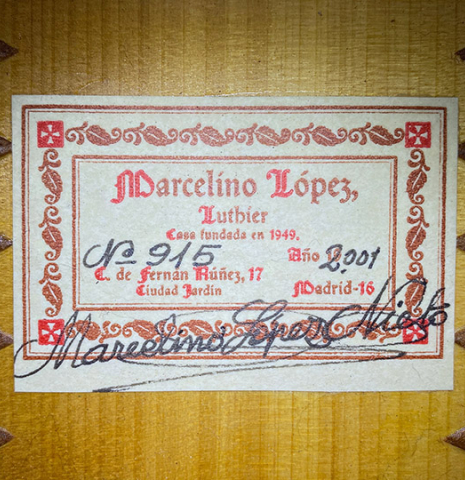 Marcelino López,
Luthier
Casa fundada en 1949.
Nº 915 Año 2.001
C. de Fernán Núñez, 17
Ciudad Jardín Madrid-16
Marcelino López Nieto